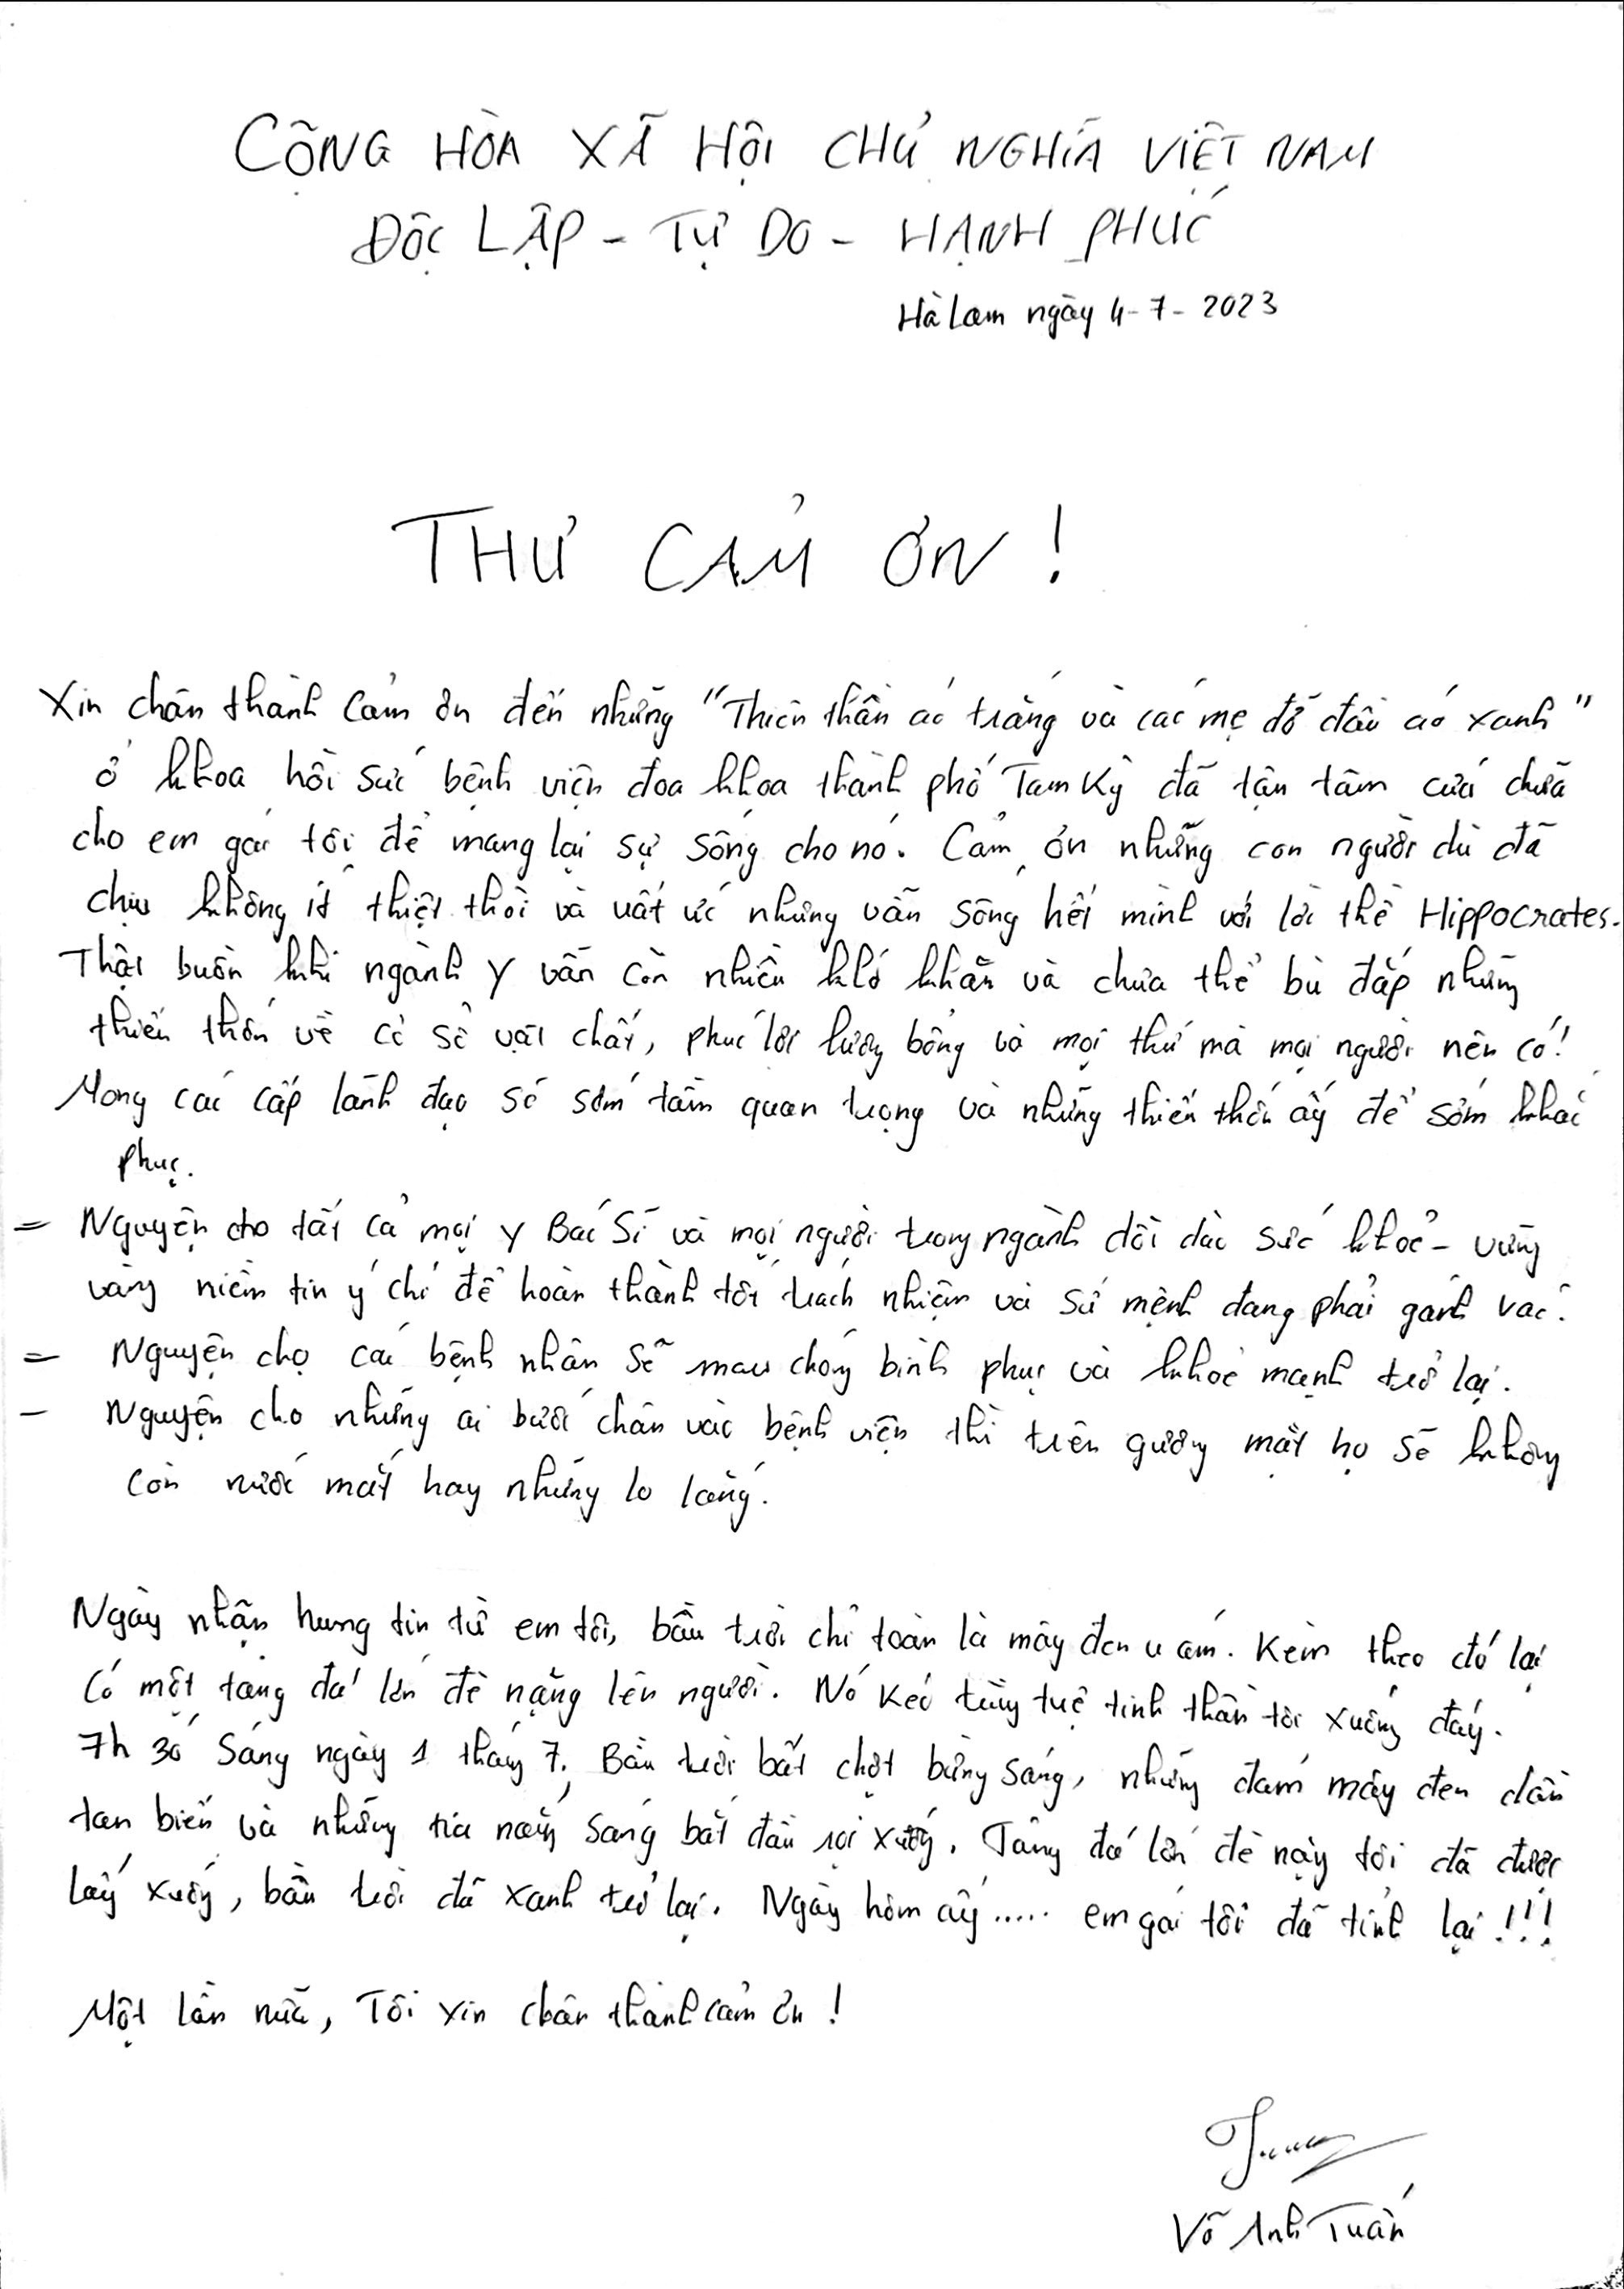 CỘNG HÒA XÃ HỘI CHỦ NGHĨA VIỆT NAM
ĐỘC LẬP - TỰ DO - HẠNH PHÚC
Hà Lam ngày 4-7-2023
THƯ CẢM ƠN !
Xin chân thành cảm ơn đến những "Thiên thần áo trắng và các mẹ đỡ đầu áo xanh"
ở khoa hồi sức bệnh viện đoa khoa thành phố Tam Kỳ đã tận tâm cứu chữa
cho em gái tôi để mang lại sự sống cho nó. Cảm ơn những con người dù đã
chịu không ít thiệt thòi và uất ức nhưng vẫn sống hết mình với lời thề Hippocrates.
Thật buồn khi ngành y vẫn còn nhiều khó khăn và chưa thể bù đắp những
thiếu thốn về cơ sở vật chất, phúc lợi lương bổng và mọi thứ mà mọi người nên có!
Mong các cấp lãnh đạo sẽ sớm tâm quan trọng và những thiếu thốn ấy để sớm khắc
phục.
= Nguyện cho tất cả mọi y Bác Sĩ và mọi người trong ngành dồi dào sức khoẻ - vững
vàng niềm tin ý chí để hoàn thành tốt trách nhiệm và sứ mệnh đang phải gánh vác.
= Nguyện cho các bệnh nhân sẽ mau chóng bình phục và khoẻ mạnh trở lại.
- Nguyện cho những ai bước chân vào bệnh viện thì trên gương mặt họ sẽ không
còn nước mắt hay những lo lắng.
Ngày nhận hung tin từ em tôi, bầu trời chỉ toàn là mây đen u ám. Kèm theo đó lại
có một tảng đá lớn đè nặng lên người. Nó kéo từng tuệ tinh thần tôi xuống đáy.
7h 30 sáng ngày 1 tháng 7. Bầu trời bất chợt bừng sáng, những đám mây đen dần
tan biến và những tia nắng sáng bắt đầu rọi xuống. Tảng đá lớn đè nặng tôi đã được
lấy xuống, bầu trời đã xanh trở lại. Ngày hôm ấy..... em gái tôi đã tỉnh lại !!!
Một lần nữa, Tôi xin chân thành cảm ơn !
Võ Anh Tuấn